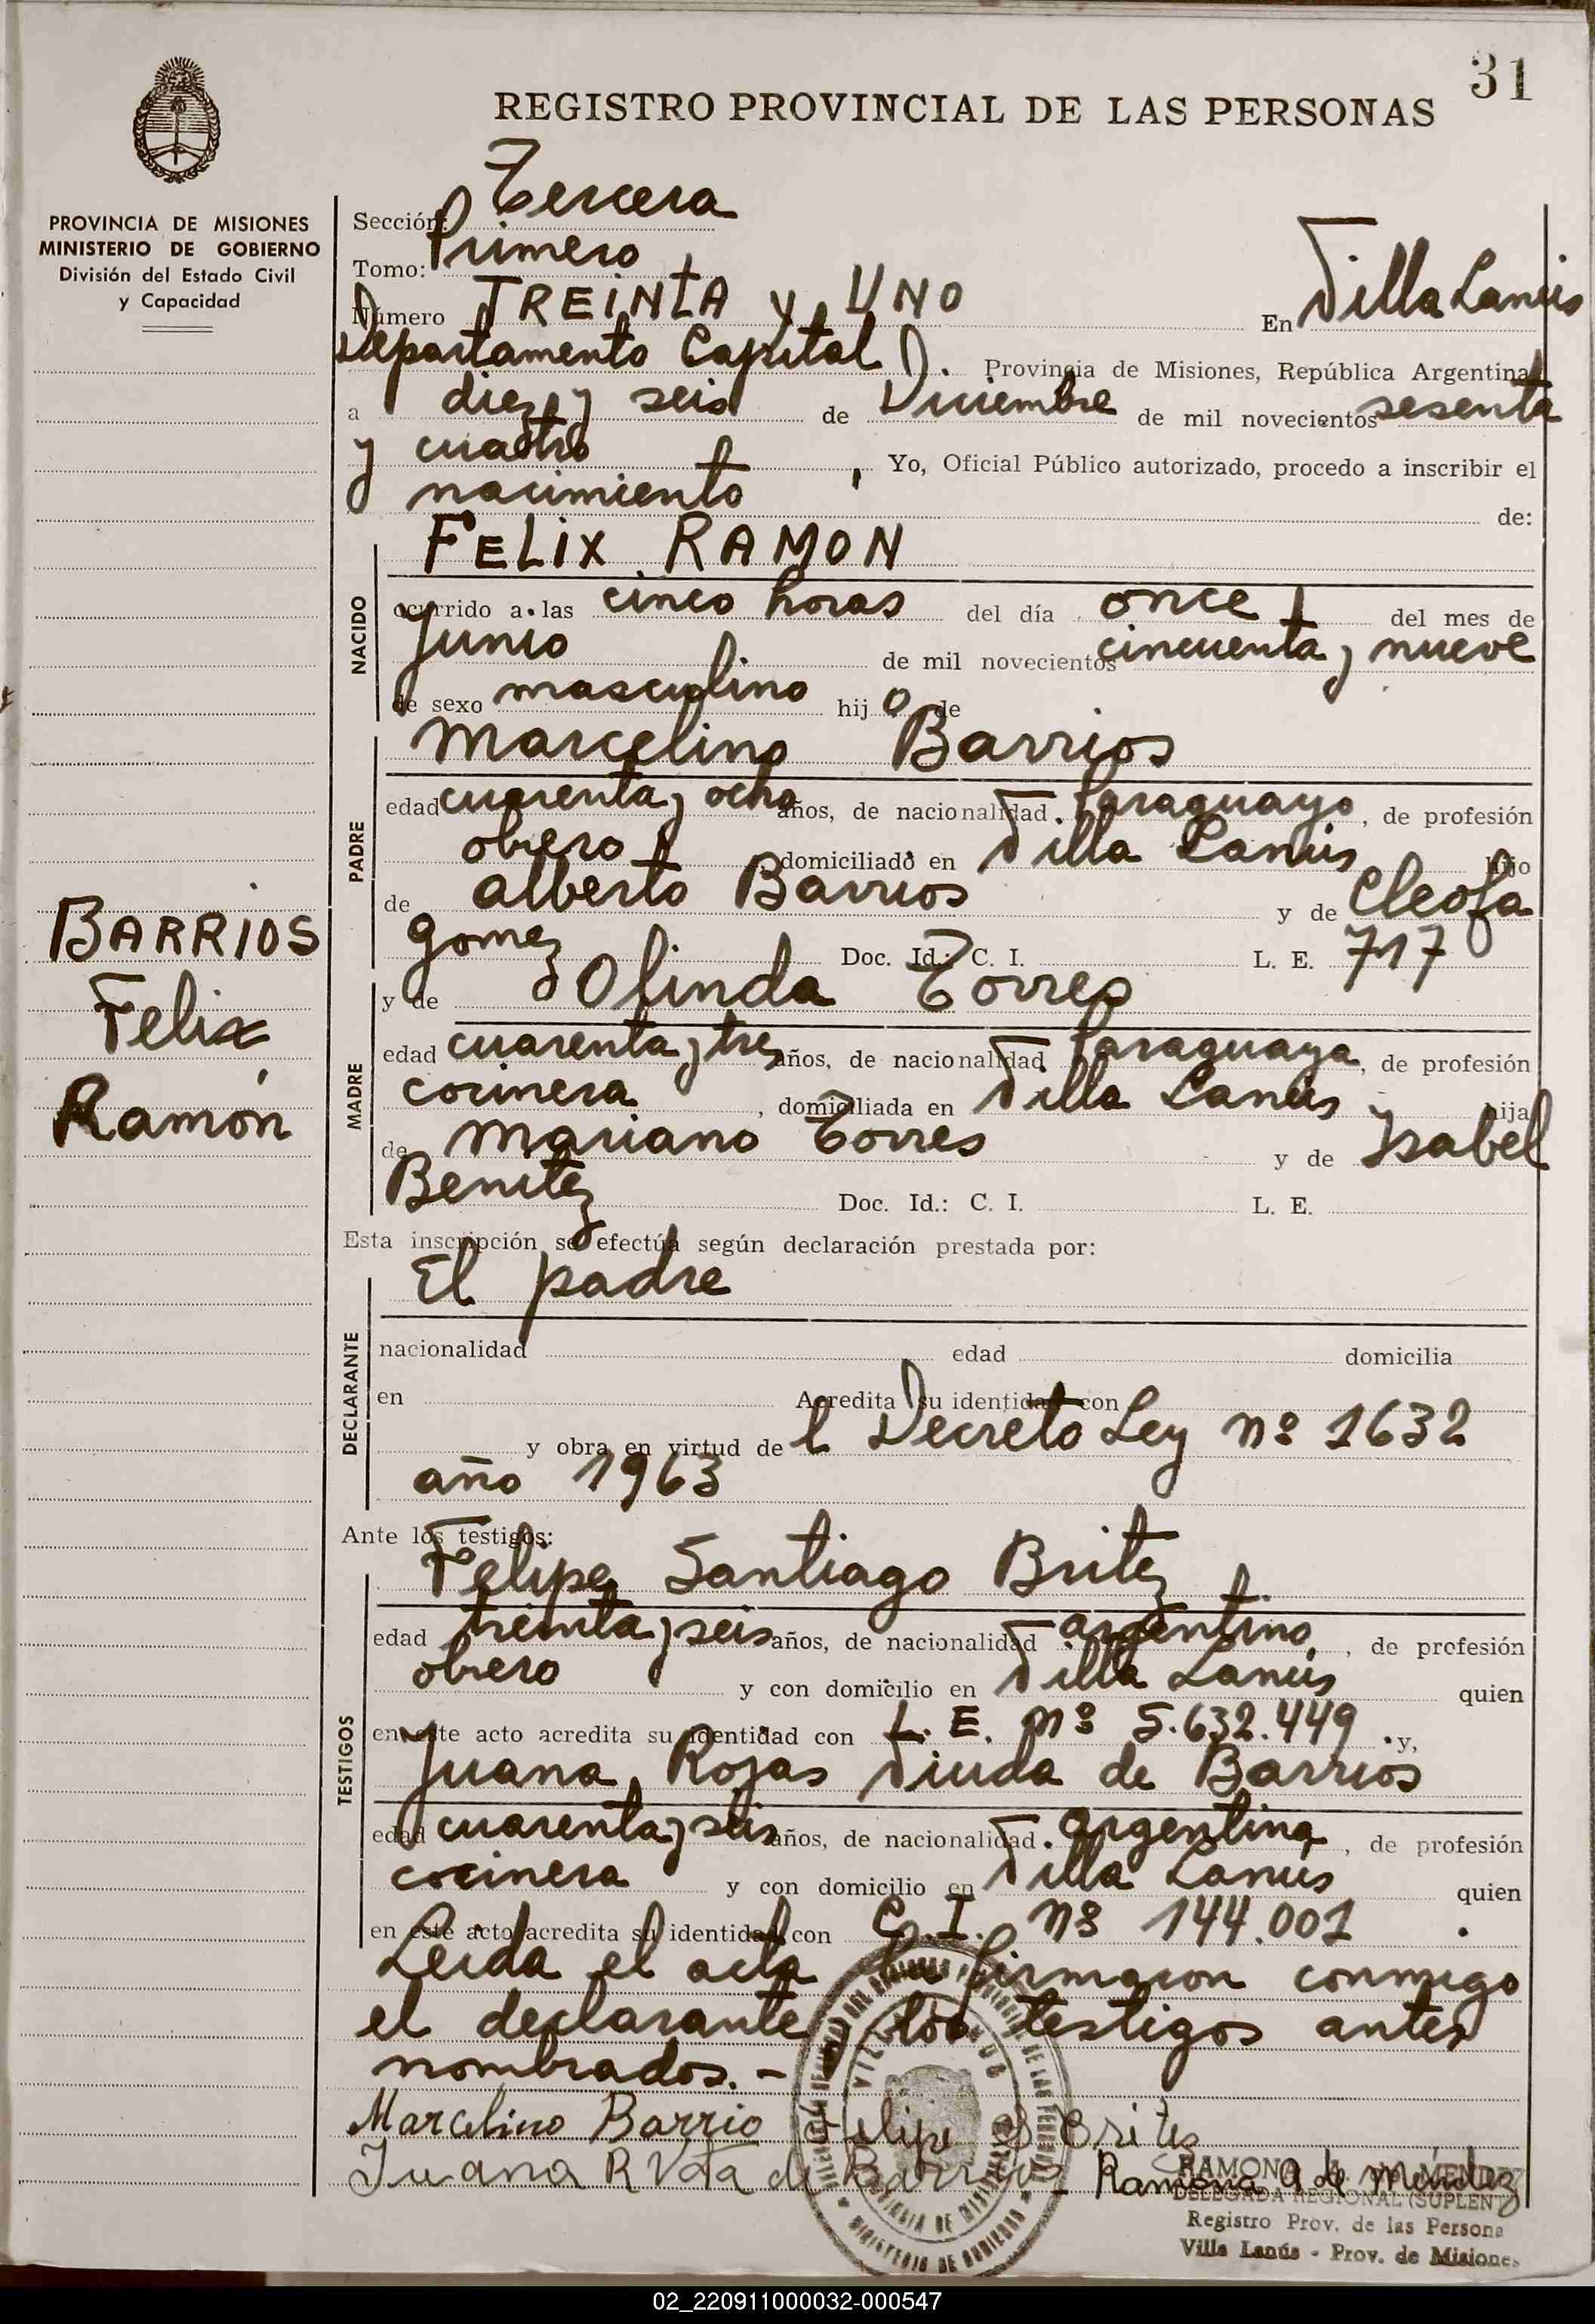 31
REGISTRO PROVINCIAL DE LAS PERSONAS
PROVINCIA DE MISIONES
MINISTERIO DE GOBIERNO
División del Estado Civil
y Capacidad
Sección: Tercera
Tomo: Primero
Número TREINTA y UNO En Villa Lanús
Departamento Capital. Provincia de Misiones, República Argentina
a diez y seis de Diciembre de mil novecientos sesenta
y cuatro, Yo, Oficial Público autorizado, procedo a inscribir el
nacimiento de:
FELIX RAMON
NACIDO
ocurrido a las cinco horas del día once del mes de
Junio de mil novecientos cincuenta y nueve
de sexo masculino hijo de
Marcelino Barrios
PADRE
edad cuarenta y ocho años, de nacionalidad Paraguayo, de profesión
obrero, domiciliado en Villa Lanús hijo
de Alberto Barrios y de Cleofa
Gomez Doc. Id.: C. I. L. E. 717
y de Olinda Torres
MADRE
edad cuarenta y tres años, de nacionalidad Paraguaya, de profesión
cocinera, domiciliada en Villa Lanús hija
de Mariano Torres y de Ysabel
Benitez Doc. Id.: C. I. L. E.
BARRIOS
Felix
Ramón
Esta inscripción se efectúa según declaración prestada por:
El padre
DECLARANTE
nacionalidad edad domicilia
en Acredita su identidad con
y obra en virtud del Decreto Ley nº 1632
año 1963
Ante los testigos:
Felipe Santiago Britez
TESTIGOS
edad treinta y seis años, de nacionalidad argentino, de profesión
obrero y con domicilio en Villa Lanús quien
en este acto acredita su identidad con L. E. Nº 5.632.449 y,
Juana Rojas Viuda de Barrios
edad cuarenta y seis años, de nacionalidad argentina, de profesión
cocinera y con domicilio en Villa Lanús quien
en este acto acredita su identidad con C. I. Nº 144.001.
Leida el acta la firmaron conmigo
el declarante y los testigos antes
nombrados.-
Marcelino Barrio Felipe S Britez
Juana R Vda de Barrios Ramona A de Méndez
RAMONA A. de MENDEZ
DELEGADA REGIONAL (SUPLENT
Registro Prov. de las Persona
Villa Lanús - Prov. de Misiones
02_220911000032-000547